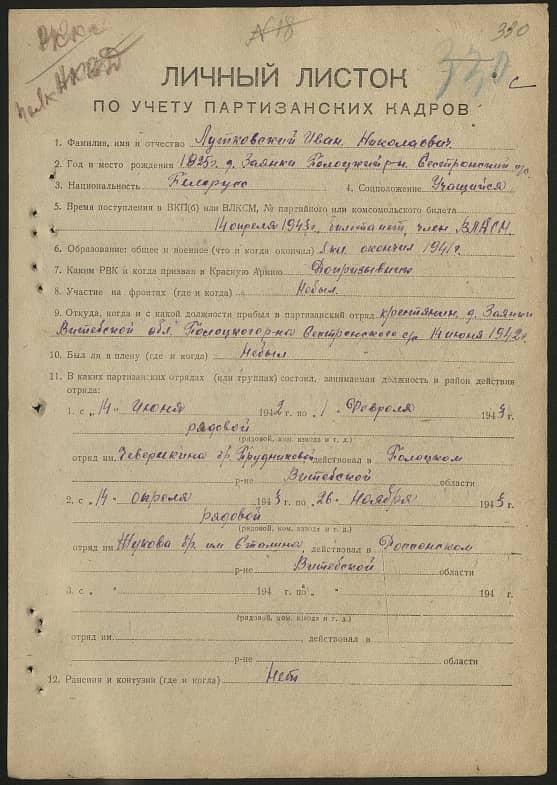 № 18
330
330
НКВД
ЛИЧНЫЙ ЛИСТОК
ПО УЧЕТУ ПАРТИЗАНСКИХ КАДРОВ
1. Фамилия, имя и отчество Лутковский Иван Николаевич.
2. Год и место рождения 1925г. д. Заянки Полоцкий р-н. Сестронский с/с
3. Национальность Белорусс 4. Соцположение Учащийся
5. Время поступления в ВКП(б) или ВЛКСМ, № партийного или комсомольского билета
14 апреля 1943г. билета нет, член ВЛКСМ.
6. Образование: общее и военное (что и когда окончил) 8 кл. окончил 1941г.
7. Каким РВК и когда призван в Красную Армию Допризывник
8. Участие на фронтах (где и когда) Небыл.
9. Откуда, когда и с какой должности прибыл в партизанский отряд крестянин д. Заянки
Витебской обл. Полоцкого р-на Сестронского с/с 14 июня 1942г.
10. Был ли в плену (где и когда) Небыл
11. В каких партизанских отрядах (или группах) состоял, занимаемая должность и район действия
отряда:
1. с „14 " Июня 1942 г. по „1 " Февраля 1943 г.
рядовой
(рядовой, ком. взвода и т. д.)
отряд им. Чеверикина бр. Прудниковой действовал в Полоцком
р-не Витебской области
2. с „14 " апреля 1943 г. по „26 " Ноября 1943 г.
рядовой
(рядовой, ком. взвода и т. д.)
отряд им. Жукова бр. им Сталина, действовал в Россонском
р-не Витебской области
3. с „ " 194 г. по „ " 194 г.
(рядовой, ком. взвода и т. д.)
отряд им. действовал в
р-не области
12. Ранения и контузии (где и когда) Нет